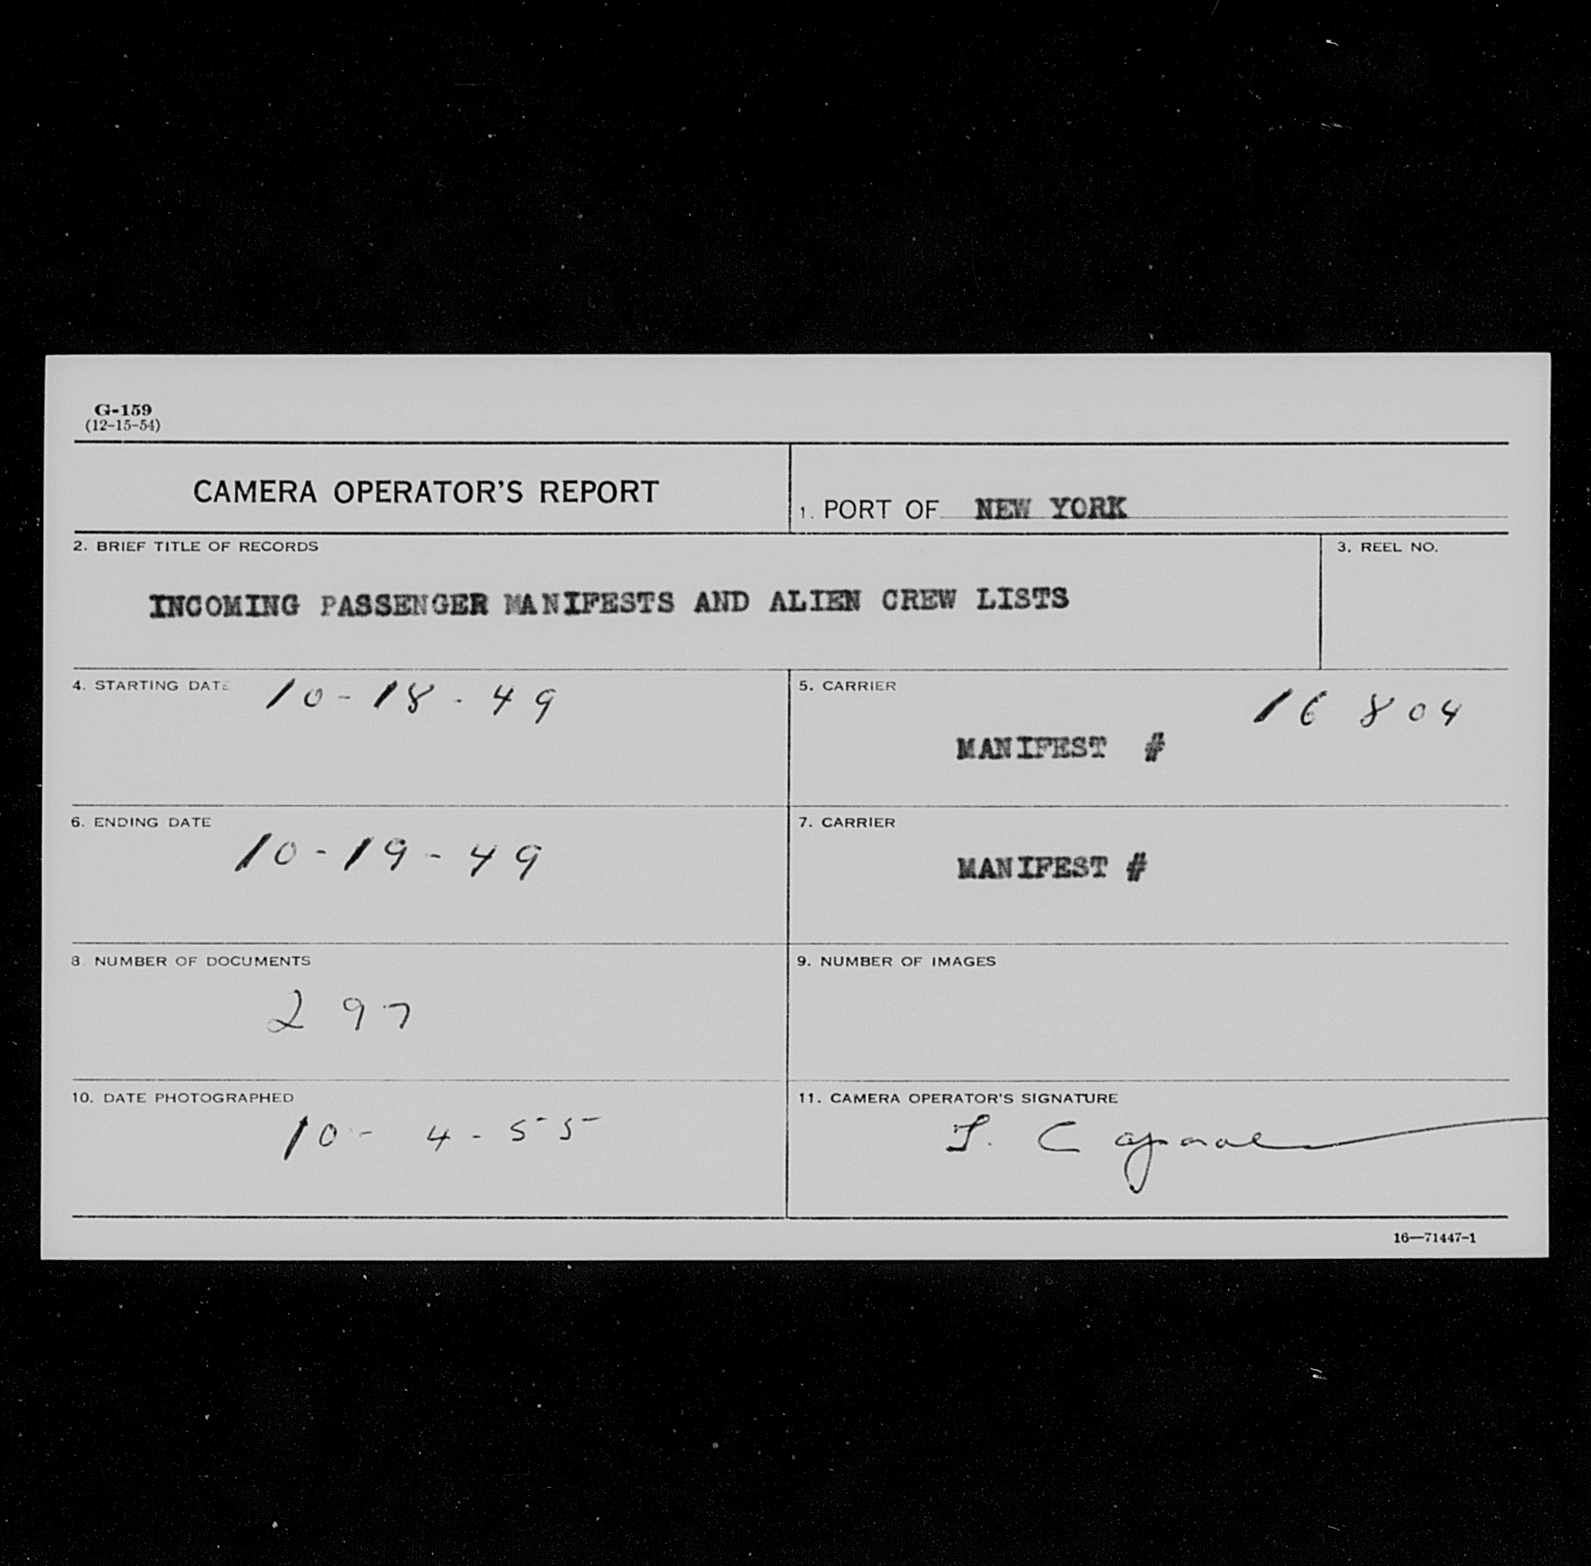 G-159
(12-15-54)
CAMERA OPERATOR'S REPORT
1. PORT OF NEW YORK
2. BRIEF TITLE OF RECORDS
3. REEL NO.
INCOMING PASSENGER MANIFESTS AND ALIEN CREW LISTS
4. STARTING DATE 10-18-49
5. CARRIER
16804
MANIFEST #
6. ENDING DATE
10-19-49
7. CARRIER
MANIFEST #
8 NUMBER OF DOCUMENTS
297
9. NUMBER OF IMAGES
10. DATE PHOTOGRAPHED
10-4-55
11. CAMERA OPERATOR'S SIGNATURE
16—71447-1